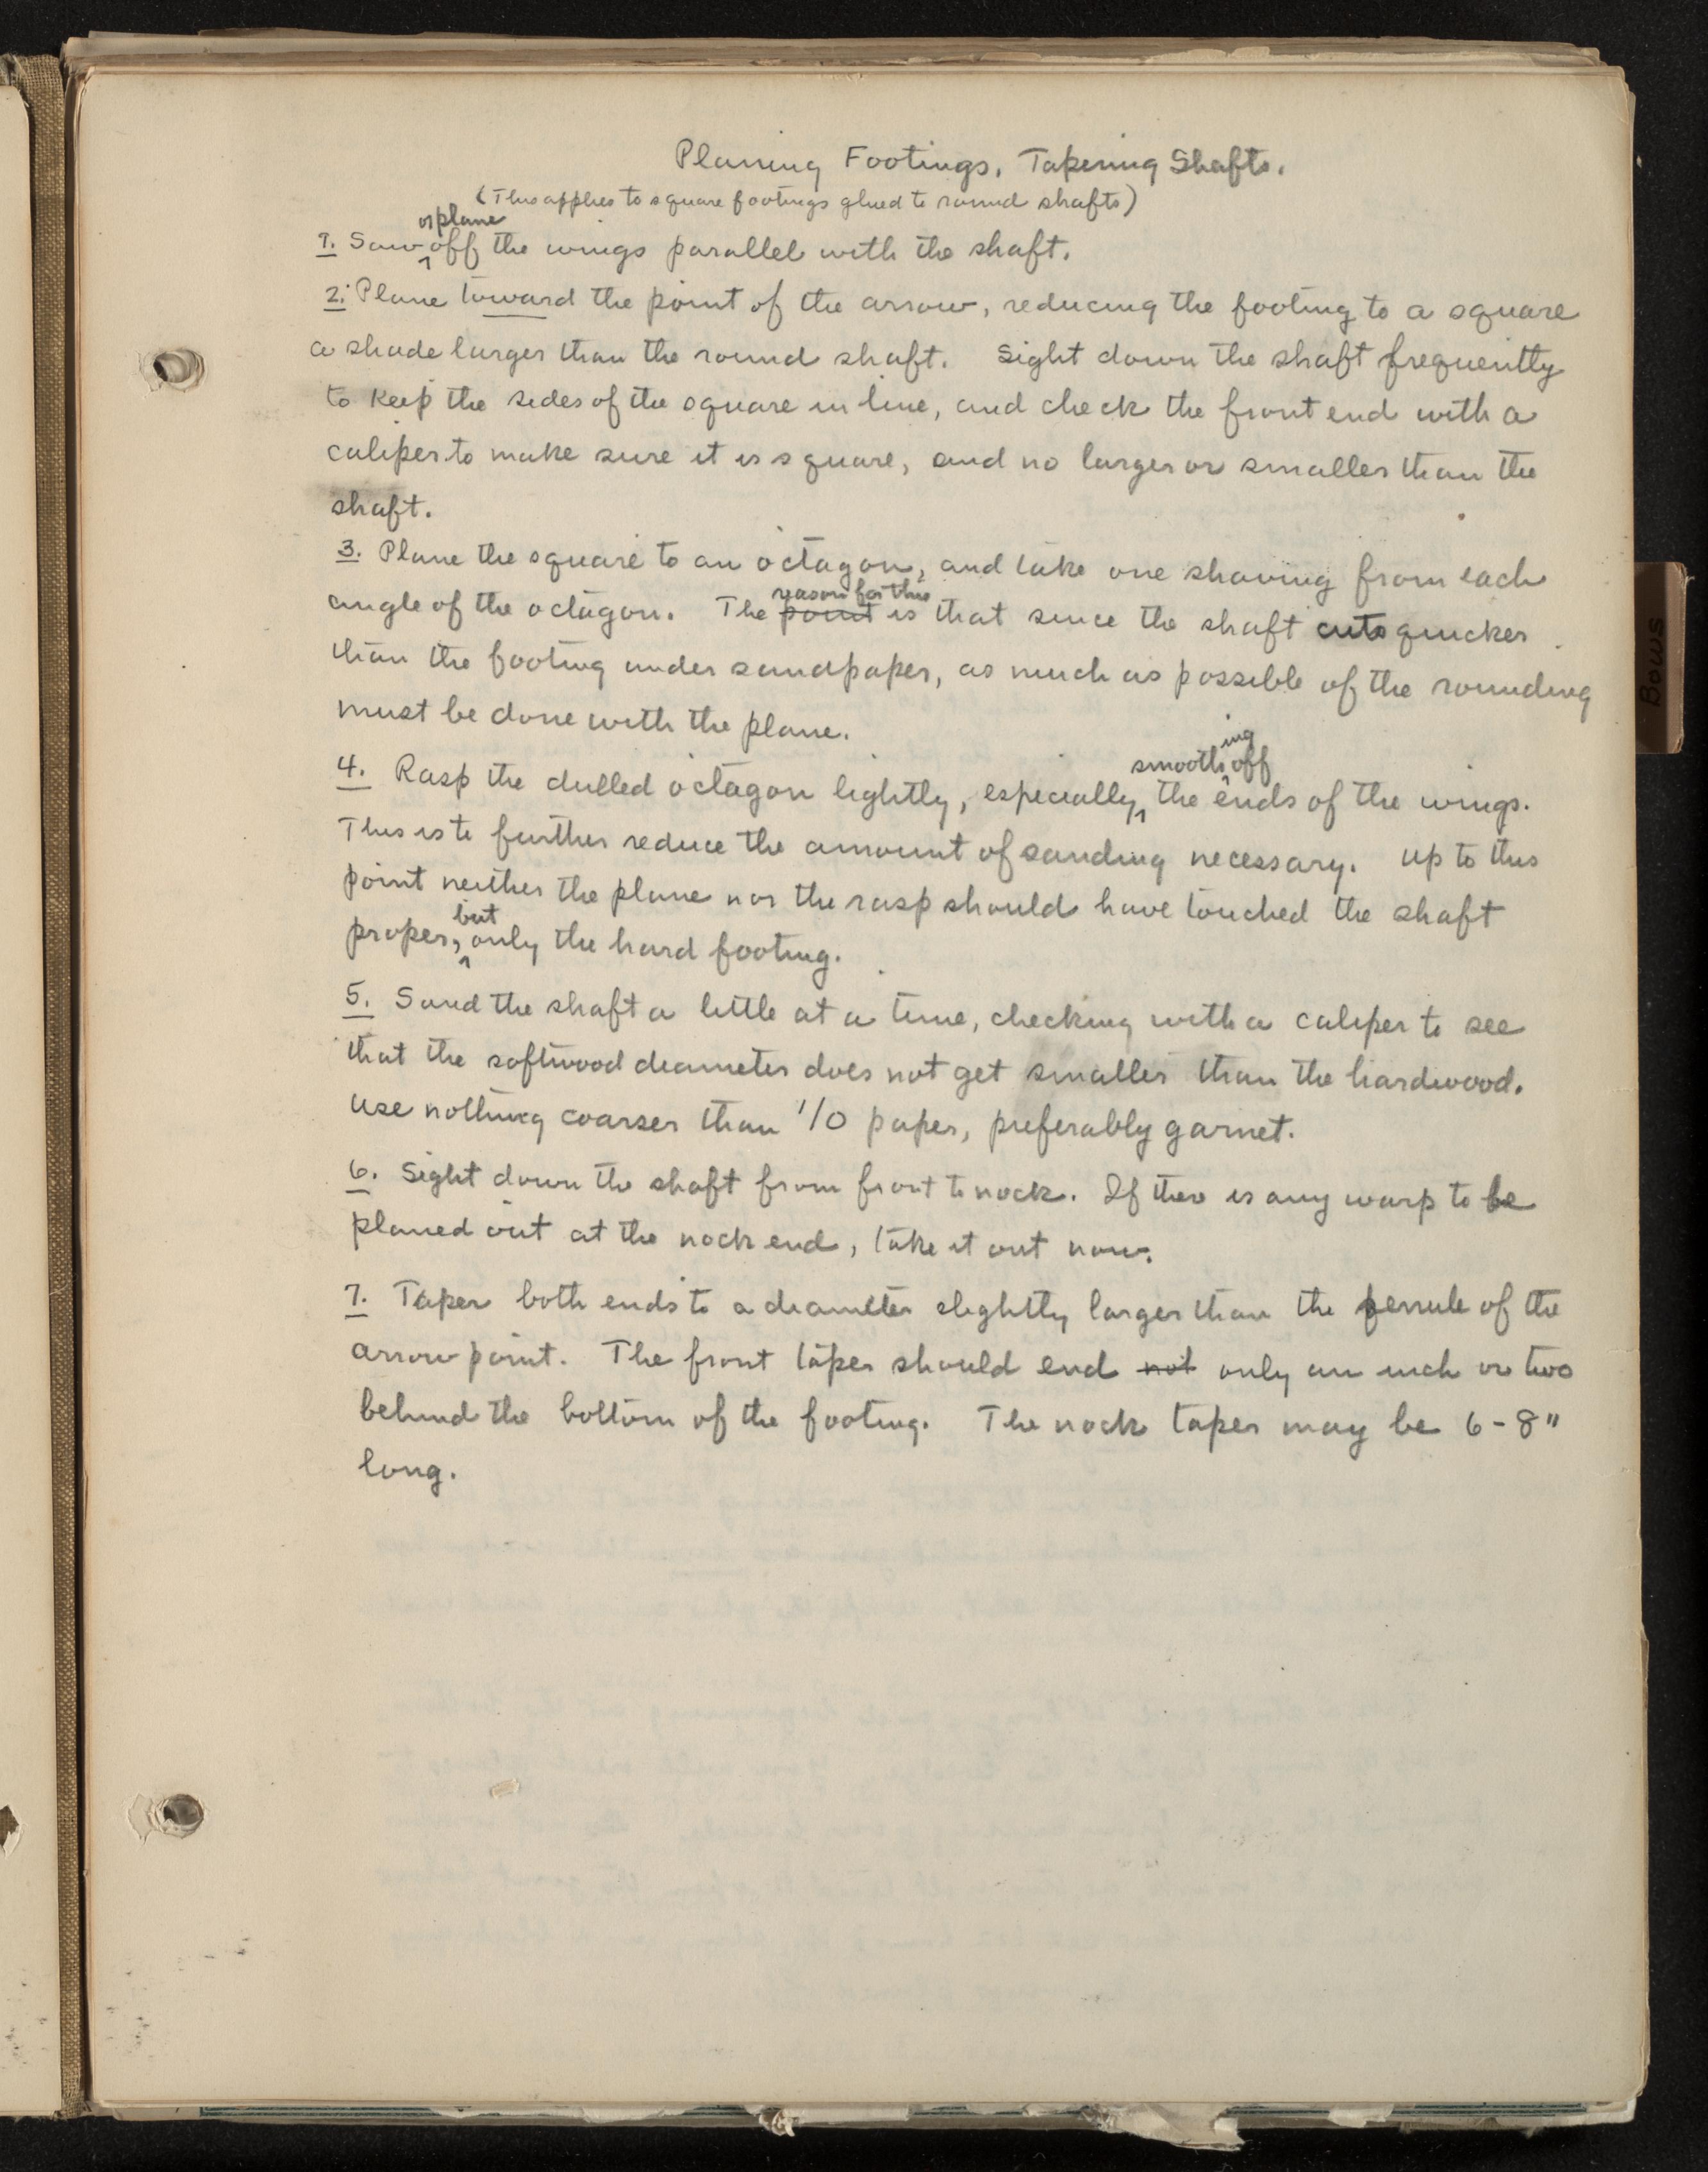 Planing Footings, Tapering Shafts.
(This applies to square footings glued to round shafts)
or plane
1. Saw ^ off the wings parallel with the shaft.
2. Plane toward the point of the arrow, reducing the footing to a square
a shade larger than the round shaft. Sight down the shaft frequently
to keep the sides of the square in line, and check the front end with a
caliper to make sure it is square, and no larger or smaller than the
shaft.
3. Plane the square to an octagon, and take one shaving from each
reason for this
angle of the octagon. The point is that since the shaft cuts quicker
than the footing under sandpaper, as much as possible of the rounding
must be done with the plane.
ing
smooth ^ off
4. Rasp the dulled octagon lightly, especially ^ the ends of the wings.
This is to further reduce the amount of sanding necessary. Up to this
point neither the plane nor the rasp should have touched the shaft
but
proper, ^ only the hard footing.
5. Sand the shaft a little at a time, checking with a caliper to see
that the softwood diameter does not get smaller than the hardwood.
Use nothing coarser than 1/0 paper, preferably garnet.
6. Sight down the shaft from front to nock. If there is any warp to be
planed out at the nock end, take it out now.
7. Taper both ends to a diameter slightly larger than the ferrule of the
arrow point. The front taper should end not only an inch or two
behind the bottom of the footing. The nock taper may be 6-8"
long.
Bows